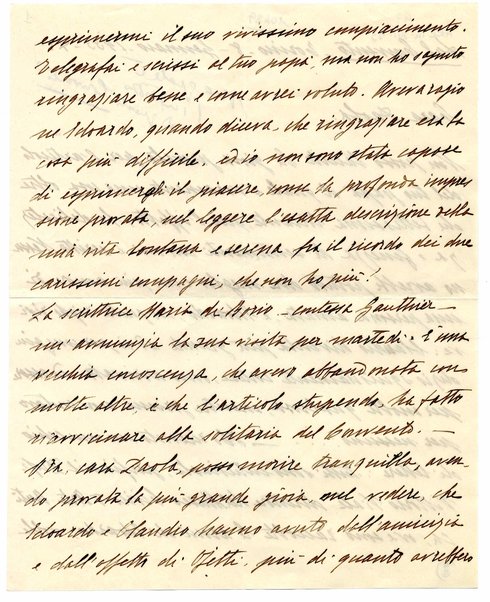 esprimermi il suo vivissimo compiacimento.
Telegrafai e scrissi al tuo papà, ma non ho saputo
ringraziare bene e come avrei voluto. Aveva ragio
ne Edoardo, quando diceva, che ringraziare era la
cosa più difficile, ed io non sono stata capace
di esprimergli il piacere, come la profonda impres
sione provata, nel leggere l'esatta descrizione della
mia vita lontana e serena fra il ricordo dei due
carissimi compagni, che non ho più!
La scrittrice Maria di Borio - contessa Gauthier -
mi annunzia la sua visita per martedì. È una
vecchia conoscenza, che avevo abbandonata con
molte altre, e che l'articolo stupendo, ha fatto
riavvicinare alla solitaria del Convento. -
Ora, cara Paola, posso morire tranquilla, aven
do provata la più grande gioia, nel vedere, che
Edoardo e Claudio, hanno avuto dall'amicizia
e dall'affetto di Ojetti, più di quanto avessero